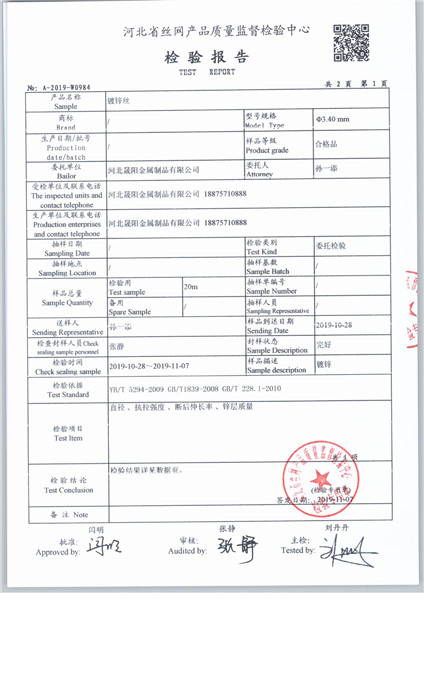 河北省丝网产品质量监督检验中心
检验报告
TEST REPORT
№: A-2019-W0984
共 2 页 第 1 页
产品名称 Sample
镀锌丝
商标 Brand
/
型号规格 Model Type
Φ3.40 mm
生产日期/批号 Production date/batch
/
样品等级 Product grade
合格品
委托单位 Bailor
河北晟阳金属制品有限公司
委托人 Attorney
孙一添
受检单位及联系电话 The inspected units and contact telephone
河北晟阳金属制品有限公司 18875710888
生产单位及联系电话 Production enterprises and contact telephone
河北晟阳金属制品有限公司 18875710888
抽样日期 Sampling Date
/
检验类别 Test Kind
委托检验
抽样地点 Sampling Location
/
抽样基数 Sample Batch
/
样品总量 Sample Quantity
检验用 Test sample
20m
抽样单编号 Sample Number
/
备用 Spare Sample
/
抽样人员 Sampling Representative
/
送样人 Sending Representative
孙一添
样品到达日期 Sending Date
2019-10-28
检查封样人员 Check sealing sample personnel
张静
封样状态 Sample Description
完好
检验时间 Check sealing sample
2019-10-28~2019-11-07
样品描述 Sample description
镀锌
检验依据 Test Standard
YB/T 5294-2009 GB/T1839-2008 GB/T 228.1-2010
检验项目 Test Item
直径、抗拉强度、断后伸长率、锌层质量
共 4 项
检验结论 Test Conclusion
检验结果详见数据页。
(检验专用章)
签发日期: 2019-11-07
备注 Note
闫明
张静
刘丹丹
批准: Approved by:
审核: Audited by:
主检: Tested by: